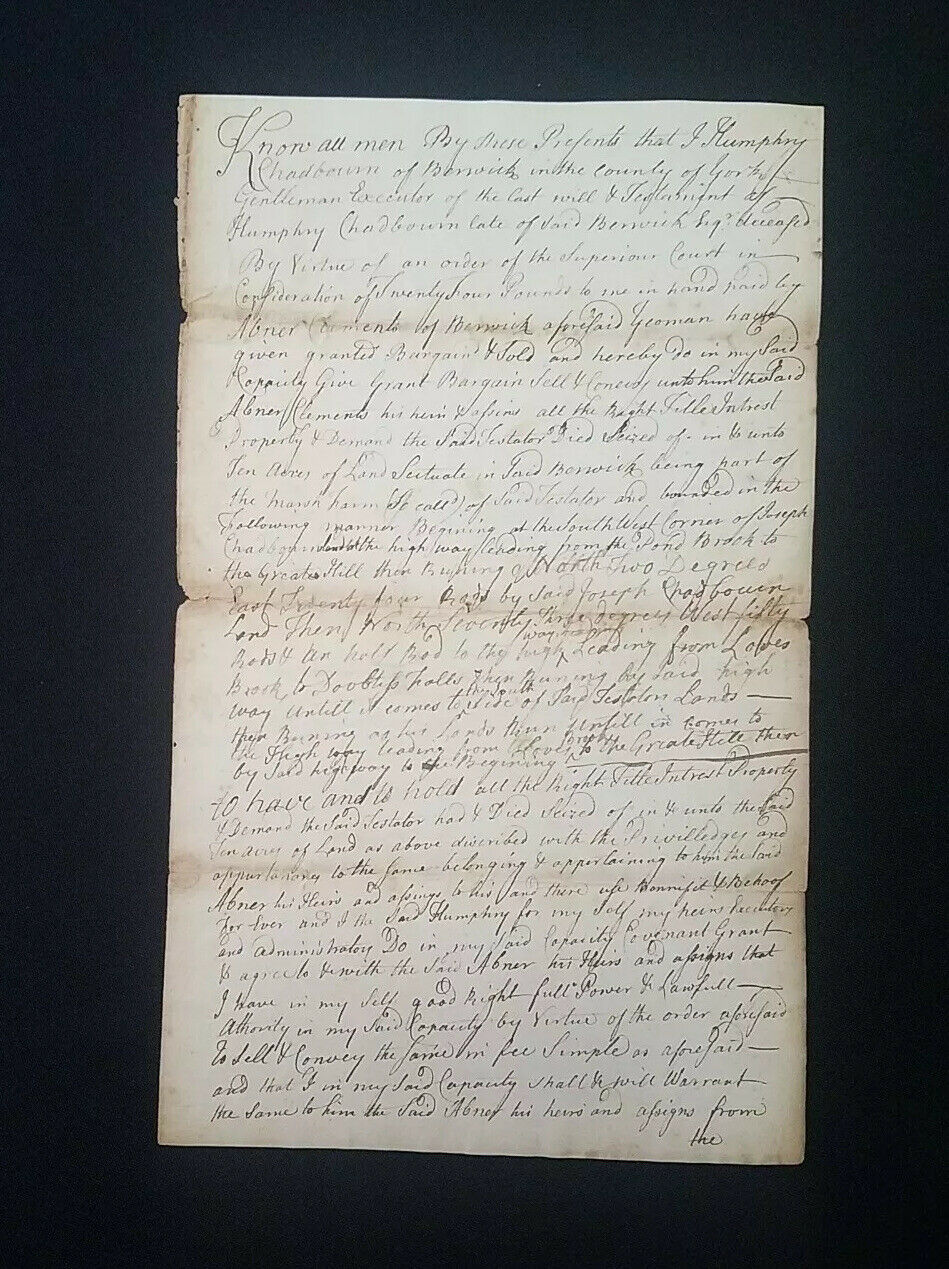 Know all men By these Presents that I Humphry
Chadbourn of Berwick in the county of York
Gentleman Executor of the last will & Testament of
Humphry Chadbourn late of said Berwick Esqr. deceased
By Virtue of an order of the Superiour Court in
Consideration of Twenty Four Pounds to me in hand paid by
Abner Clements of Berwick aforesaid Yeoman have
given granted Bargain'd & Sold and hereby do in my Said
Capacity Give Grant Bargain Sell & Convey unto him the Said
Abner Clements his heirs & assigns all the Right Title Intrest
Property & Demand the Said Testator Died Seized of in & unto
Ten Acres of Land Scituate in Said Berwick being part of
the marsh (So calld) of Said Testator and bounded in the
Following manner Begining at the South West Corner of Joseph
Chadbourn land at the high way leading from the Pond Brook to
the Greate Hill then Runing North Two Degrees
East Twenty four Rods by Said Joseph Chadbourn
Land Then North Seventy Three degrees West fifty
Rods & an half Rod to the high way Leading from Loves
Brook to Doubtys falls then Runing by Said high
way untill it comes to the South side of Said Testators Lands
then Runing as his Lands Runn untill it comes to
the High way leading from Loves brook to the Greate Hill then
by Said highway to the Begining
to have and to hold all the Right Title Intrest Property
& Demand the Said Testator had & Died Seized of in & unto the Said
Ten acres of Land as above discribed with the Privilledges and
appurtanances to the same belonging & appertaining to him the Said
Abner his Heirs and assigns to his and there use Bennifit & Behoof
For Ever and I the Said Humphry for my Self my heirs Executors
and administrators Do in my Said Capacity Covenant Grant
& agree to & with the Said Abner his Heirs and assigns that
I have in my Self good Right full Power & Lawfull
Authority in my Said Capacity by Virtue of the order aforesaid
To Sell & Convey the same in fee Simple as aforesaid
and that I in my Said Capacity shall & will Warrant
the same to him the Said Abner his heirs and assigns from
the